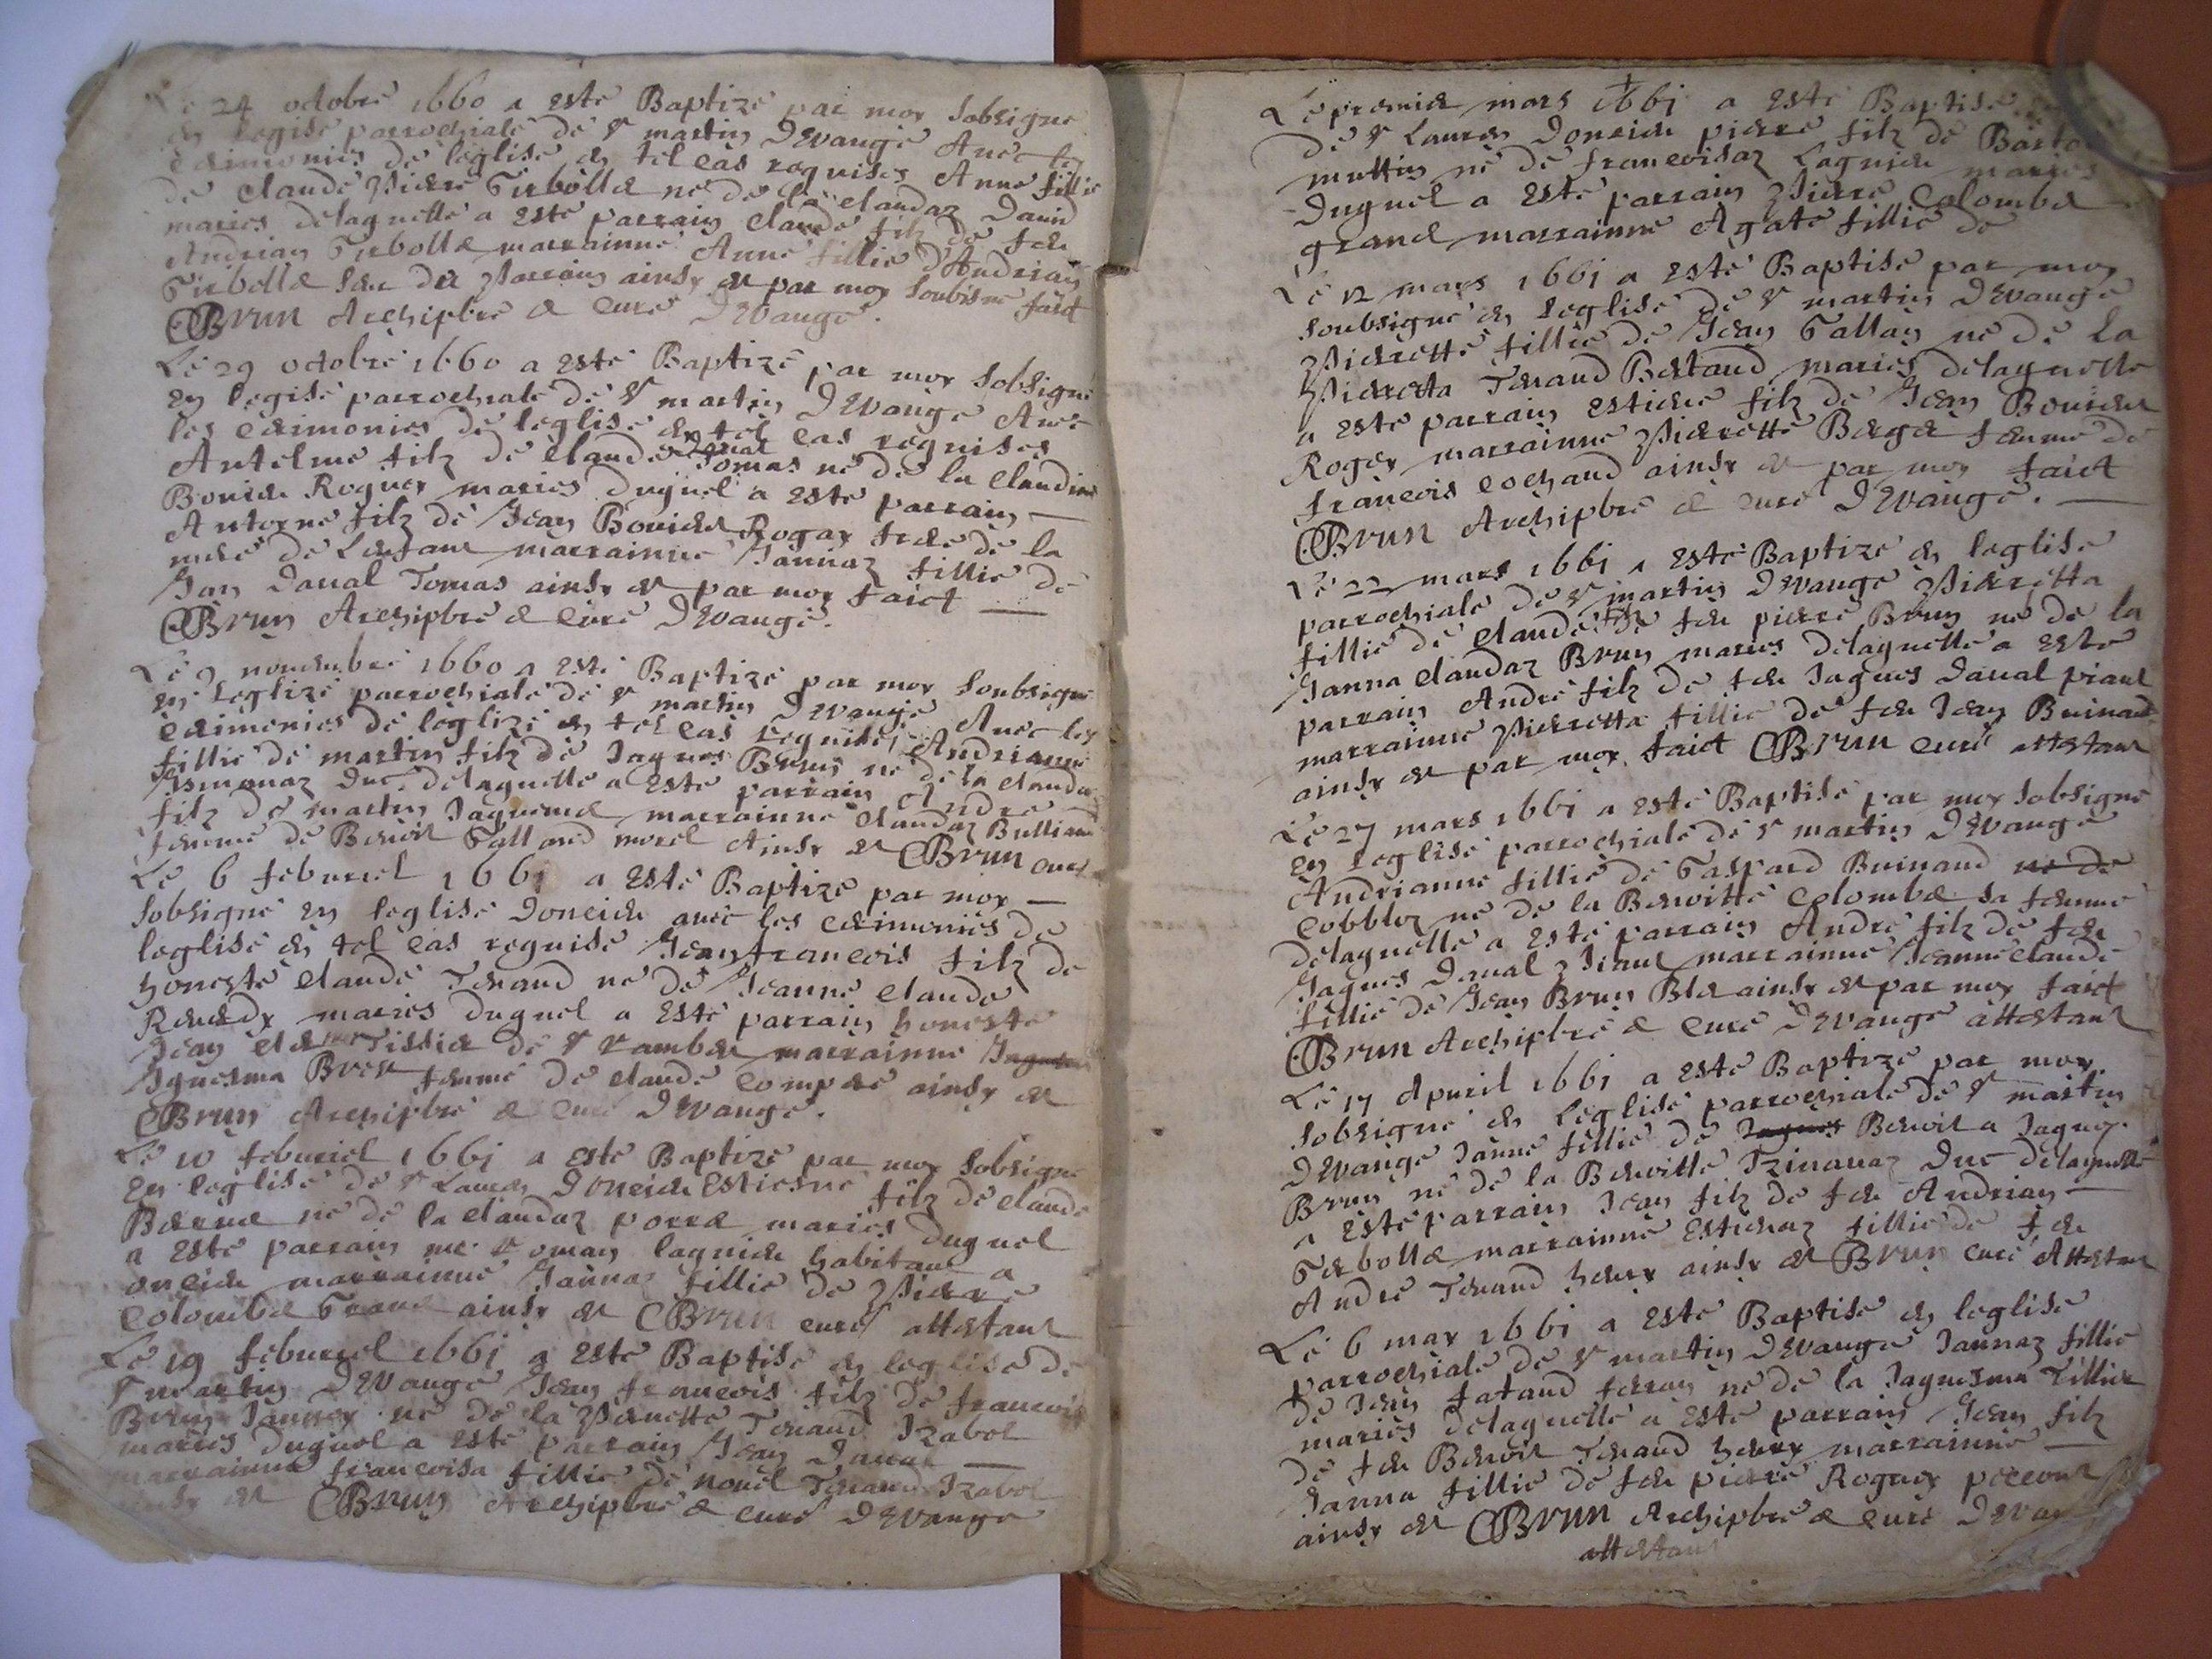 Le 24 octobre 1660 a este Baptize par moy sobsigne
en legise parrochiale de St martin D Evange Avec les
cerimonies de leglise en tel cas requises Anne fillie
de Claude Pierre Gerbolle ne de la Claudaz David
maries delaquelle a este parrain Claude filz de feu
Andrian Gerbolle marrainne Anne fillie d'Andrian
Gerbolle seur du Parrain ainsy est par moy soubsine faict
CBrun Archipbre & Cure D Evange.
Le 29 octobre 1660 a este Baptize par moy sobsigne
en legise parrochiale de St martin D Evange Avec
les cerimonies de leglise en tel cas requises
Antelme filz de Claude Daval Tomas ne de la Claudine
Bovier Roguex maries duquel a este parrain —
Antoyne filz de Jean Bovier Rogay frere de la
mere de Lenfant marrainne Jannaz fillie de
Jan Daval Tomas ainsy est par moy faict —
CBrun Archipbre & Cure D Evange.
Le 9 novembre 1660 a este Baptize par moy soubsigne
en Leglize parrochiale de St martin D Evange Avec les
cerimonies de leglize en tel cas requises Andrianne
fillie de martin filz de Jaques Brun ne de la Clauda
Duc delaquelle a este parrain Andre
filz de martin Jaqueme marrainne Claudaz Bulliand
femme de Benoit Galland morel Ainsy est CBrun Cure
Le 6 febvriel 1661 a este Baptize par moy —
sobsigne en leglise Doncieu avec les cerimonies de
leglise en tel cas requise Jeanfrancois filz de
honeste Claude Tenand ne de Jeanne Claude
maries duquel a este parrain honeste
Jean Tissier de St Rambert marrainne
femme de Claude Compere ainsy est
CBrun Archipbre & Cure D Evange.
Le 10 febvriel 1661 a este Baptize par moy sobsigne
En leglise de St Lauren Doncieu Estiesne filz de Claude
ne de la Claudaz porre maries duquel
a este parrain me Roman lagnieu habitant a
oncieu marrainne Jannaz fillie de Pierre
Colombe Grand ainsy est CBrun Cure attestant
Le 19 febvriel 1661 a este Baptise en leglise de
St martin D Evange Jean francois filz de francois
Brun Jannex ne de la Pernette Tenand Izabol
maries duquel a este parrain Jean Daval —
marrainne francoisa fillie de Novel Tenand Izabol
est CBrun Archipbre & Cure D Evange
Le premier mars 1661 a este Baptise
de St Lauren Doncieu pierre filz de
muttin ne de francoisaz Lagnieu maries
Duquel a este parrain Pierre Colombe
grand marrainne Agate fillie de
Le 12 mars 1661 a este Baptise par moy
soubsigne en Leglise de St martin D Evange
Pierrette fillie de Jean Gallay ne de La
Pierretta Tenand Bertand maries delaquelle
a este parrain estiene filz de Jean Bovier
Rogex marrainne Pierrette Berge femme de
francois Cochand ainsy est par moy faict
CBrun Archipbre & Cure D Evange. —
Le 22 mars 1661 a este Baptize en leglise
parrochiale de St martin D Evange Pierretta
fillie de Claude filz de feu pierre Brun ne de la
Janna Claudaz Brun maries delaquelle a este
parrain Andre filz de feu Jaques Daval piant
marrainne Pierretta fillie de feu Jean Buinand
ainsy est par moy faict CBrun Cure attestant
Le 27 mars 1661 a este Baptise par moy sobsigne
En Leglise parrochiale de St martin D Evange
Andrianne fillie de Gaspard Buinand ne de
Cobbloz ne de la Benoitte Colombe sa femme
delaquelle a este parrain Andre filz de feu
Jaques Daval Piant marrainne Jeanne Claude
fillie de Jean Brun Ble ainsy est par moy faict
CBrun Archipbre & Cure D Evange attestant
Le 17 Apvril 1661 a este Baptize par moy
sobsigne en Leglise parrochiale de St martin
D Evange Janne fillie de Jaques Benoit a Jaquez
Brun ne de la Benoitte Tzinavaz Duc delaquelle
a este parrain Jean filz de feu Andrian —
Gerbolle marrainne Estienaz fillie de feu
Andre Tenand henry ainsy est CBrun Cure Attestant
Le 6 may 1661 a este Baptise en leglise
parrochiale de St martin D Evange Jannaz fillie
de Jean fatand ferran ne de la Jaquesma Tillier
maries delaquelle a este parrain Jean filz
de feu Benoit Tenand henry marrainne —
Janna fillie de feu pierre Roguex
ainsy est CBrun Archipbre & Cure D Evange
attestant